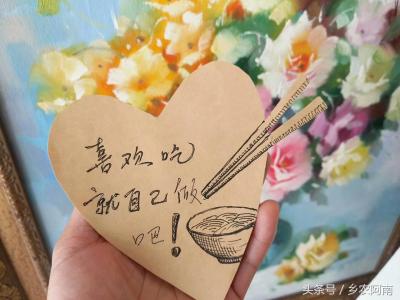 喜欢吃
就自己做
吧!
头条号/乡农阿南